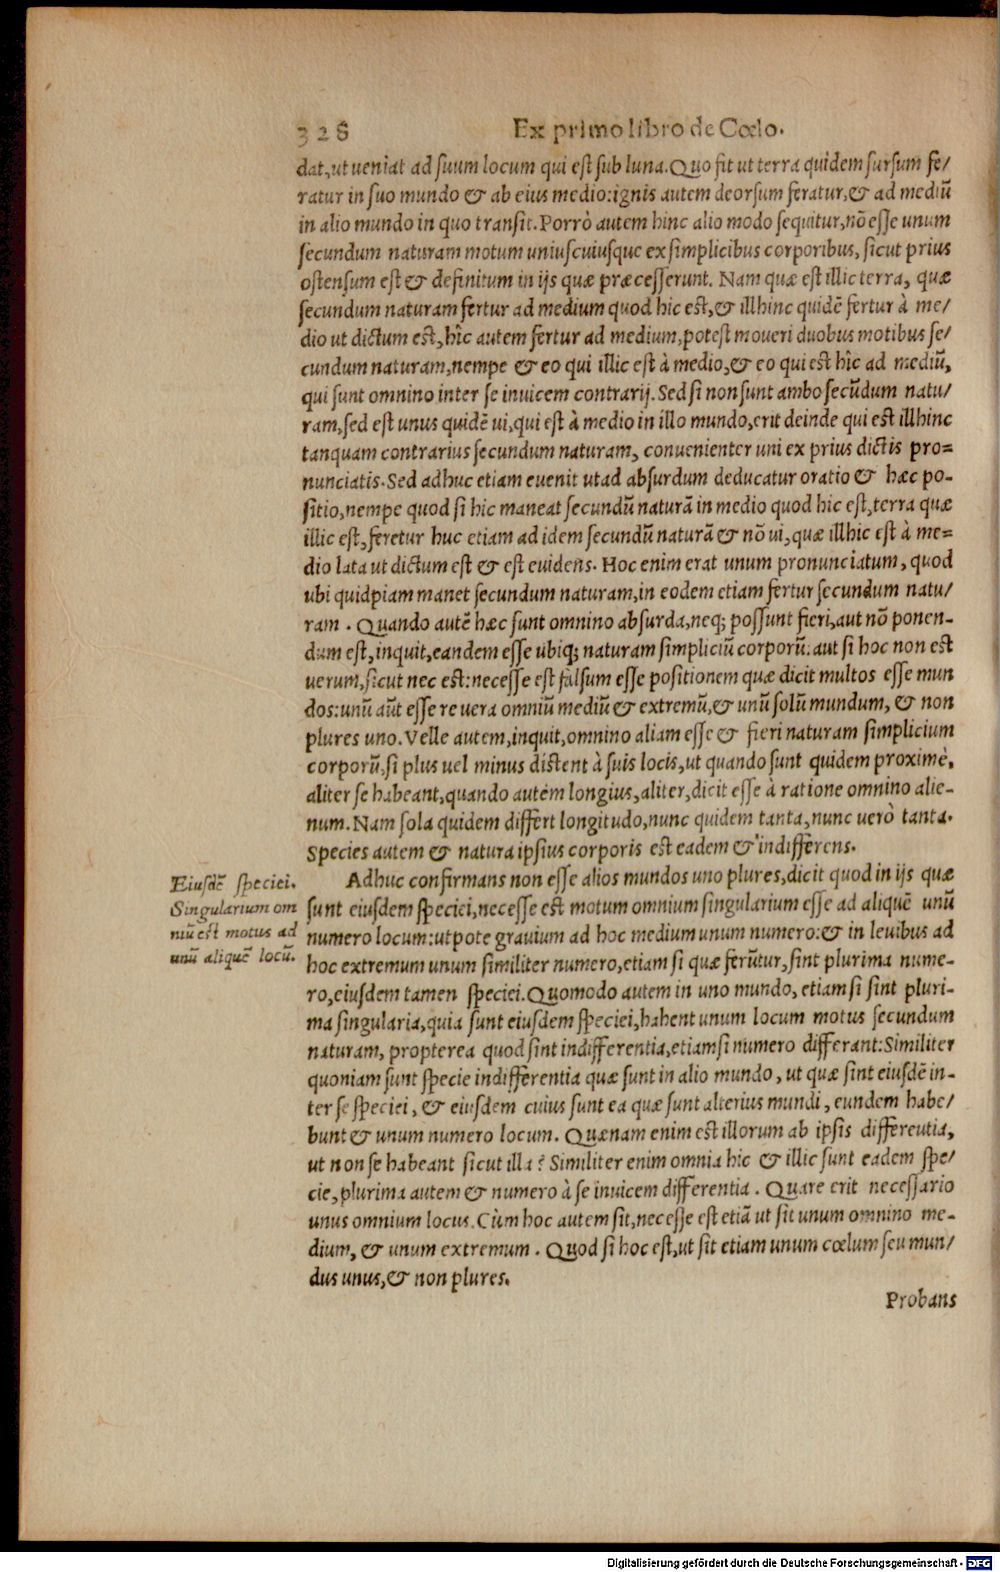 328 Ex primo libro de Cœlo.
dat, ut veniat ad suum locum qui est sub luna. Quo fit ut terra quidem sursum fe/
ratur in suo mundo & ab eius medio: ignis autem deorsum feratur, & ad mediũ
in alio mundo in quo transit. Porrò autem hinc alio modo sequitur, nõ esse unum
secundum naturam motum uniuscuiusque ex simplicibus corporibus, sicut prius
ostensum est & definitum in ijs quæ præcesserunt. Nam quæ est illic terra, quæ
secundum naturam fertur ad medium quod hic est, & illhinc quidẽ fertur à me/
dio ut dictum est, hîc autem fertur ad medium, potest moveri duobus motibus se/
cundum naturam, nempe & eo qui illic est à medio, & eo qui est hîc ad mediũ,
qui sunt omnino inter se invicem contrarij. Sed si non sunt ambo secũdum natu/
ram, sed est unus quidẽ vi, qui est à medio in illo mundo, erit deinde qui est illhinc
tanquam contrarius secundum naturam, convenienter uni ex prius dictis pro=
nunciatis. Sed adhuc etiam evenit ut ad absurdum deducatur oratio & hæc po-
sitio, nempe quod si hic maneat secundũ naturã in medio quod hic est, terra quæ
illic est, feretur huc etiam ad idem secundũ naturã & nõ vi, quæ illhic est à me=
dio lata ut dictum est & est evidens. Hoc enim erat unum pronunciatum, quod
ubi quidpiam manet secundum naturam, in eodem etiam fertur secundum natu/
ram. Quando autẽ hæc sunt omnino absurda, neq; possunt fieri, aut nõ ponen-
dum est, inquit, eandem esse ubiq; naturam simpliciũ corporũ: aut si hoc non est
verum, sicut nec est: necesse est falsum esse positionem quæ dicit multos esse mun
dos: unũ aũt esse re vera omniũ mediũ & extremũ, & unũ solũ mundum, & non
plures uno. Velle autem, inquit, omnino aliam esse & fieri naturam simplicium
corporũ, si plus vel minus distent à suis locis, ut quando sunt quidem proximè,
aliter se habeant, quando autem longius, aliter, dicit esse à ratione omnino alie-
num. Nam sola quidem differt longitudo, nunc quidem tanta, nunc verò tanta.
Species autem & natura ipsius corporis est eadem & indifferens.
Adhuc confirmans non esse alios mundos uno plures, dicit quod in ijs quæ
sunt eiusdem speciei, necesse est motum omnium singularium esse ad aliquẽ unũ
numero locum: utpote gravium ad hoc medium unum numero: & in levibus ad
hoc extremum unum similiter numero, etiam si quæ ferũtur, sint plurima nume-
ro, eiusdem tamen speciei. Quomodo autem in uno mundo, etiam si sint pluri-
ma singularia, quia sunt eiusdem speciei, habent unum locum motus secundum
naturam, propterea quod sint indifferentia, etiamsi numero differant: Similiter
quoniam sunt specie indifferentia quæ sunt in alio mundo, ut quæ sint eiusdẽ in-
ter se speciei, & eiusdem cuius sunt ea quæ sunt alterius mundi, eundem habe/
bunt & unum numero locum. Quænam enim est illorum ab ipsis differentia,
ut non se habeant sicut illa? Similiter enim omnia hic & illic sunt eadem spe/
cie, plurima autem & numero à se invicem differentia. Quare erit necessario
unus omnium locus. Cùm hoc autem sit, necesse est etiã ut sit unum omnino me-
dium, & unum extremum. Quod si hoc est, ut sit etiam unum cœlum seu mun/
dus unus, & non plures.
Probans
Eiusdẽ speciei.
Singularium om
niũ est motus ad
unũ aliquẽ locũ.
Digitalisierung gefördert durch die Deutsche Forschungsgemeinschaft - DFG